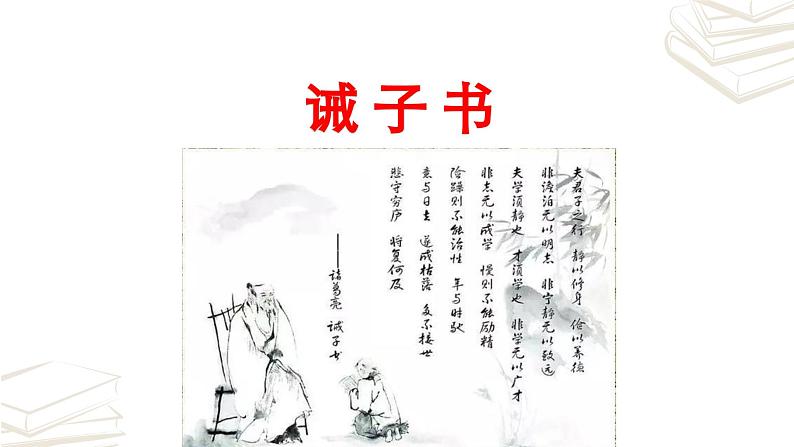 诫子书
夫君子之行 静以修身 俭以养德
非澹泊无以明志 非宁静无以致远
夫学须静也 才须学也 非学无以广才
非志无以成学 慢则不能励精
险躁则不能治性 年与时驰
意与日去 遂成枯落 多不接世
悲守穷庐 将复何及
——诸葛亮 诫子书